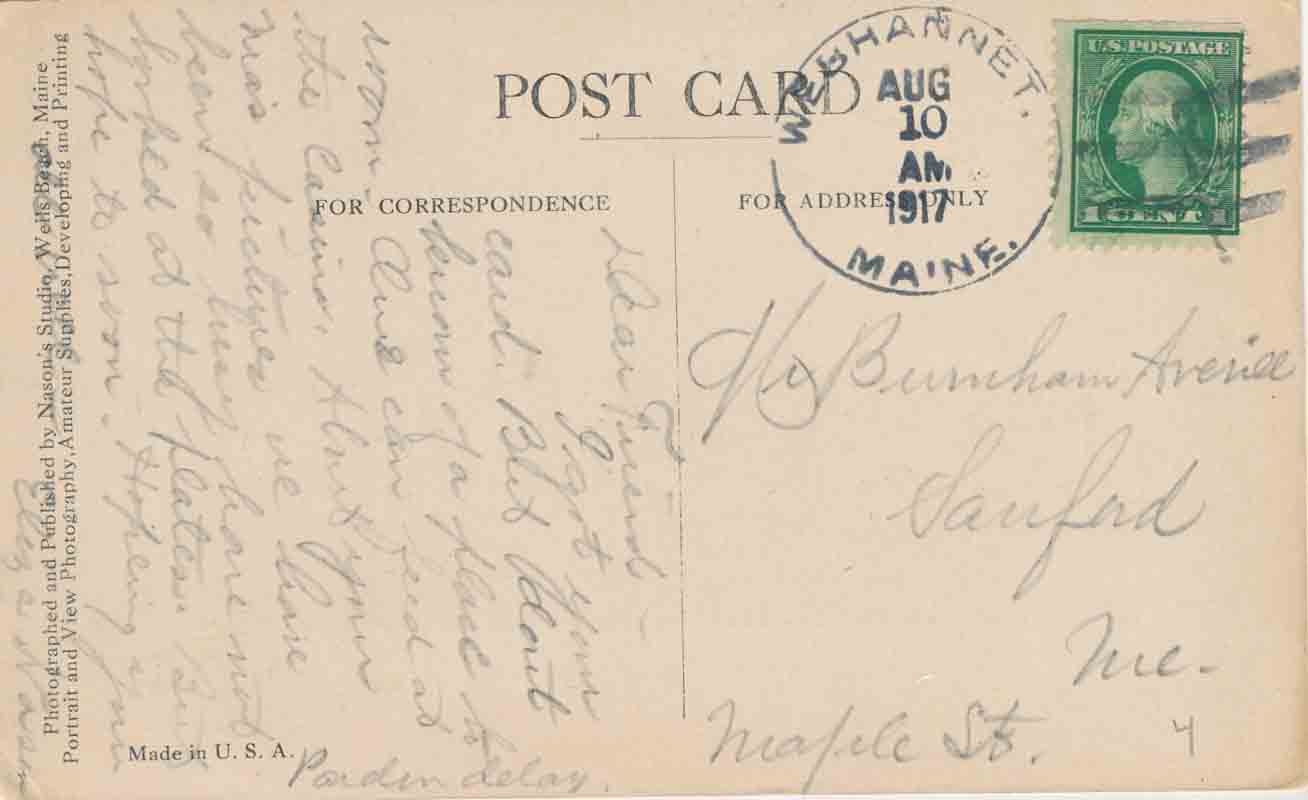 POST CARD
WEBHANNET.
AUG
10
AM
1917
MAINE.
U.S. POSTAGE
1 CENT 1
FOR CORRESPONDENCE
FOR ADDRESS ONLY
Burnham Averill
Sanford
Me.
Maple St.
4
Dear Friend -
I got your
card. But dont
know of a place to
room. One can feed at
the Casino. About your
pictures we have
been so busy have not
looked at the plates. But
hope to soon. Hoping
Pardon delay.
Nason
Photographed and Published by Nason's Studio, Wells Beach, Maine
Portrait and View Photography, Amateur Supplies, Developing and Printing
Made in U. S. A.